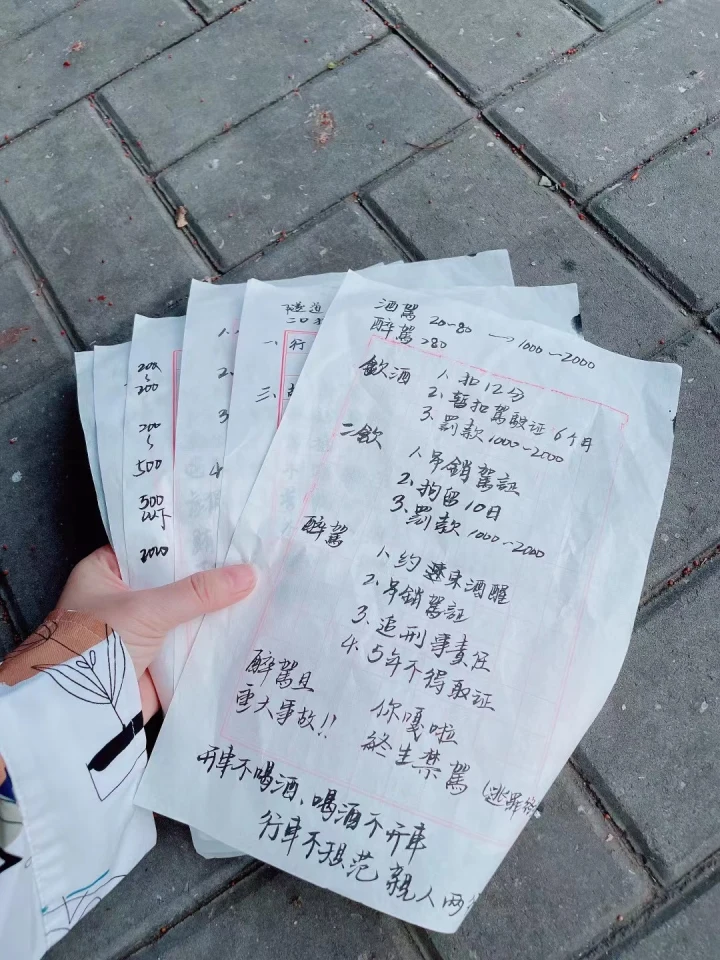 酒駕 20~80 → 1000~2000
醉駕 >80
飲酒 1. 扣12分
2. 暂扣駕駛证6个月
3. 罰款 1000~2000
二飲 1. 吊銷駕証
2. 拘留10日
3. 罰款 1000~2000
醉駕 1. 约束酒醒
2. 吊銷駕証
3. 追刑事責任
4. 5年不得取证
醉駕且
重大事故!! 你嘎啦
終生禁駕 (逃罪
开車不喝酒、喝酒不开車
行車不规范 親人两
隧道
一. 行
三.
1.
2.
3
4
200
~
200
~
500
500
以下
2000